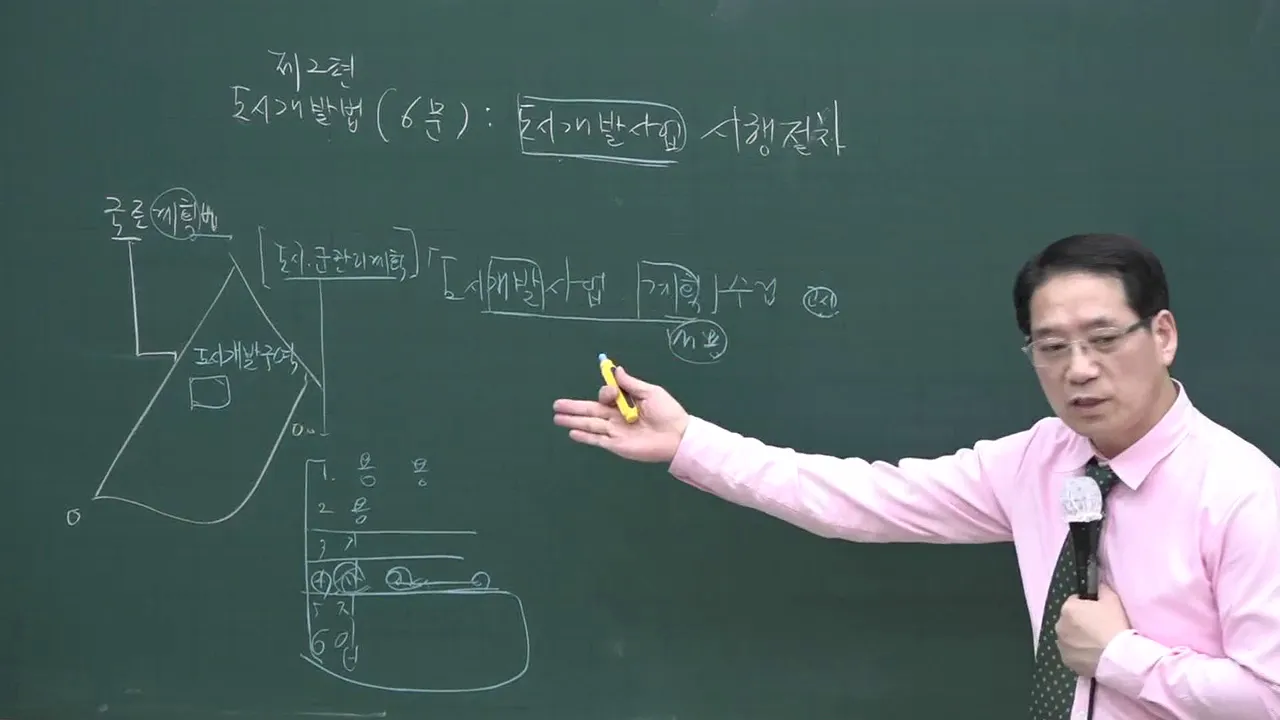 제2편
도시개발법 (6문) : 도시개발사업 시행절차
국토계획법
[도시.군관리계획]
「도시개발사업 계획 수립
도시개발구역
1. 용 용
2 용
3 지
5 지
6 입